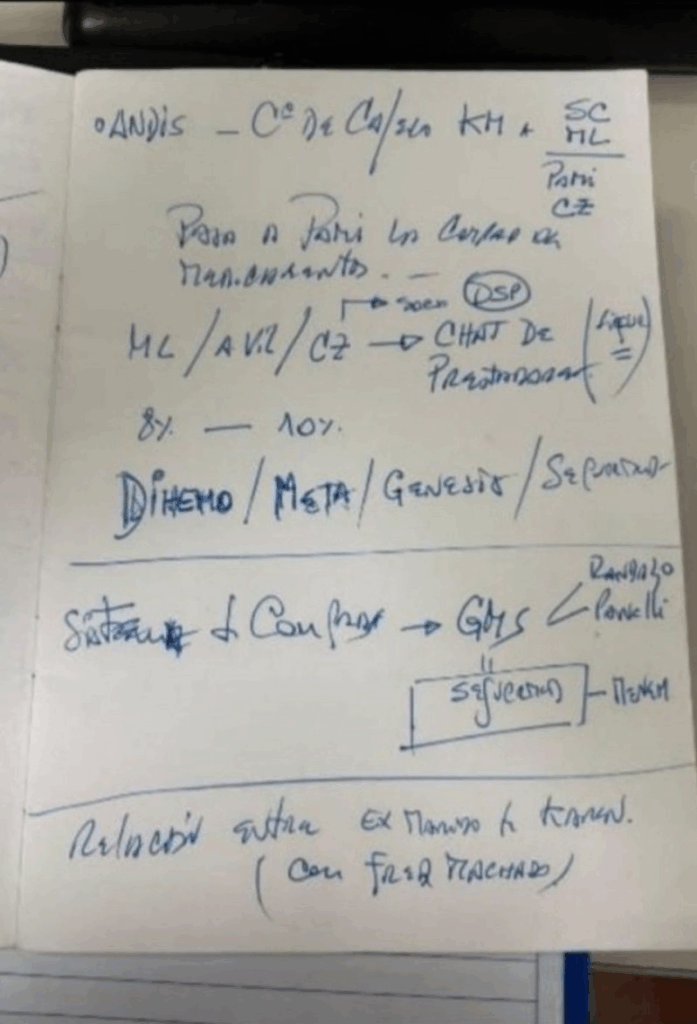 ° ANDIS – Cº DE CA/ELO KM + SC
ML
PAMI
CZ
PASA A PAMI LA COMPRA DE
MEDICAMENTOS. —
ML / AVIL / CZ → SOCIA DSP
→ CHAT DE
PRESTADORES
8% — 10%
DIHEMO / META / GENESIS / SEGURIDAD
SISTEMA d COMPRAS → GMS < RANDAZO
PANELLI
SEGURIDAD – MENEM
RELACIÓN ENTRE EX MARIDO d KAREN.
(CON FRED MACHADO)